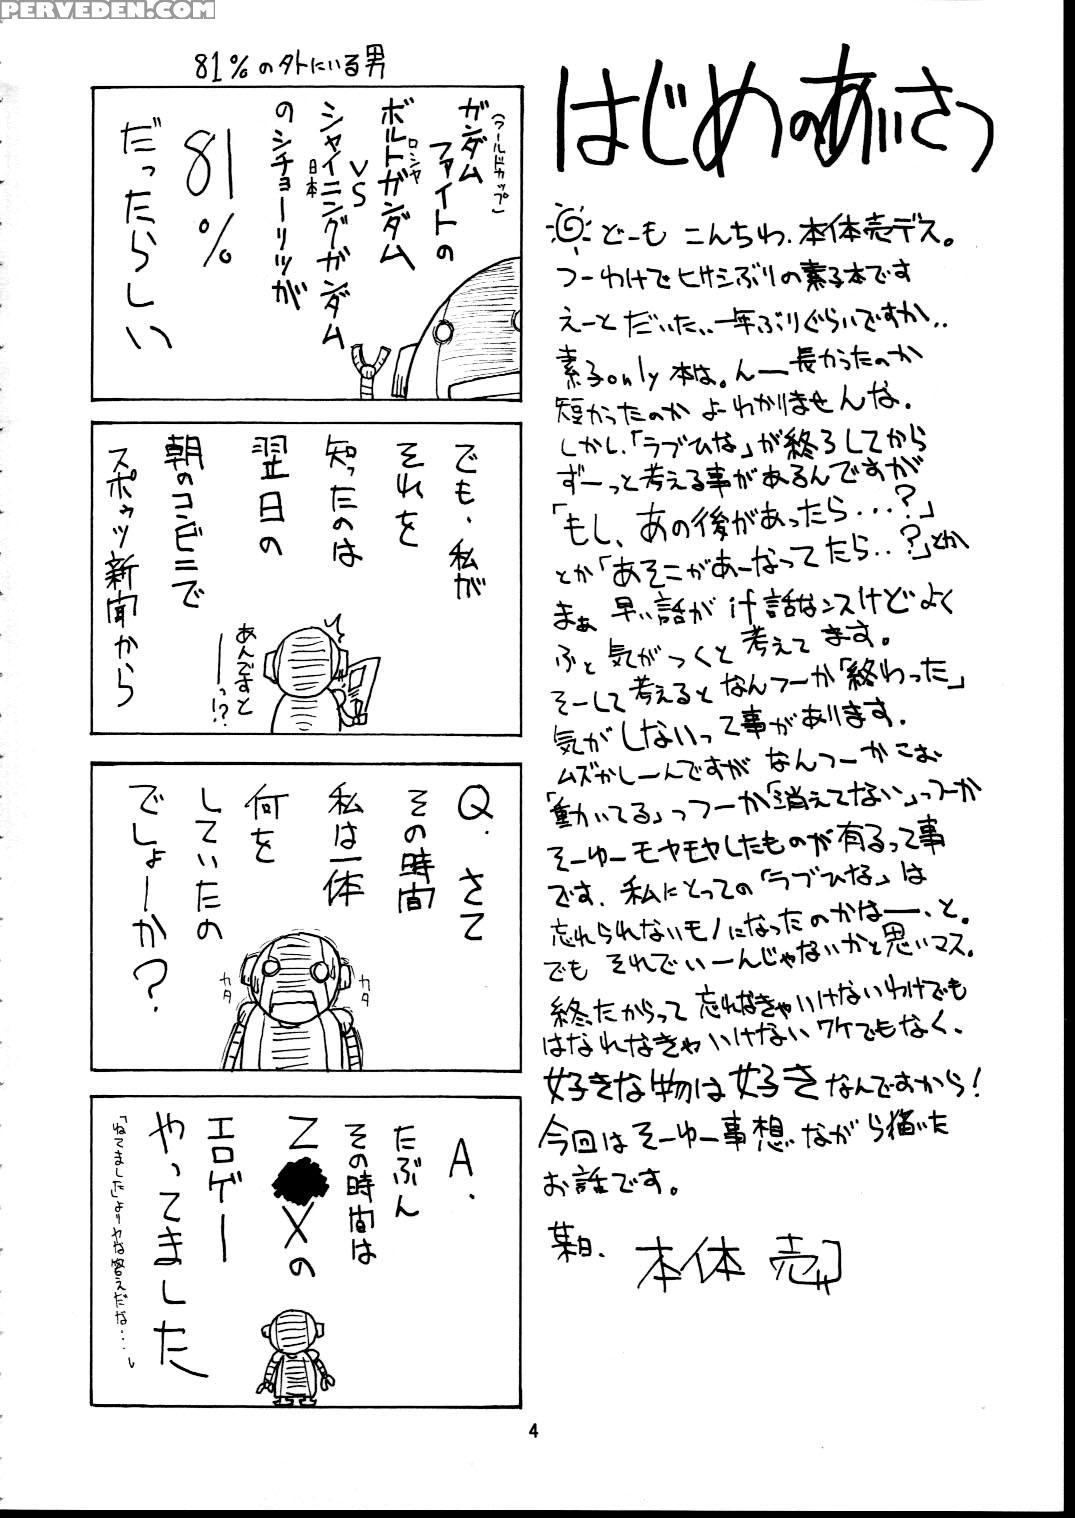 PERVEDEN.COM
はじめのあいさつ
どーも こんちわ、本体売デス。
つーわけでヒサシぶりの素子本です
えーと だいたい、一年ぶりぐらいですか、、
素子only本は。んー長かったのか
短かったのか よーわかりませんな。
しかし、「ラブひな」が終ろしてから
ずーっと考える事があるんですが
「もし、あの後があったら・・・?」
とか「あそこがあーなってたら・・?」とか
まぁ 早い話が if話なンスけどよく
ふと気がつくと考えてます。
そーして考えるとなんつーか「終わった」
気がしないって事があります。
ムズかしーんですが なんつーかこお
「動いてる」っつーか「消えてない」っつーか
そーゆーモヤモヤしたものが有るって事
です。私にとっての「ラブひな」は
忘れられないモノになったのかなー、と。
でも それでいーんじゃないかと思いマス。
終ったからって忘れなきゃいけないわけでも
はなれなきゃいけないワケでもなく、
好きな物は好きなんですから!
今回はそーゆー事想いながら描いた
お話です。
某日、 本体 売
81%の外にいる男
ガンダム
(ワールドカップ)
ファイトの
ボルトガンダム
ロシヤ
VS
シャイニングガンダム
日本
のシチョーリツが
81%
だったらしい
でも、私が
それを
知ったのは
翌日の
朝のコンビニで
スポゥツ新聞から
あんですと
ーっ!?
Q.さて
その時間
私は一体
何を
していたの
でしょーか?
カタ
カタ
A.
たぶん
その時間は
Z●Xの
エロゲー
やってました
「ねてました」よりヤな答えだな・・・
4